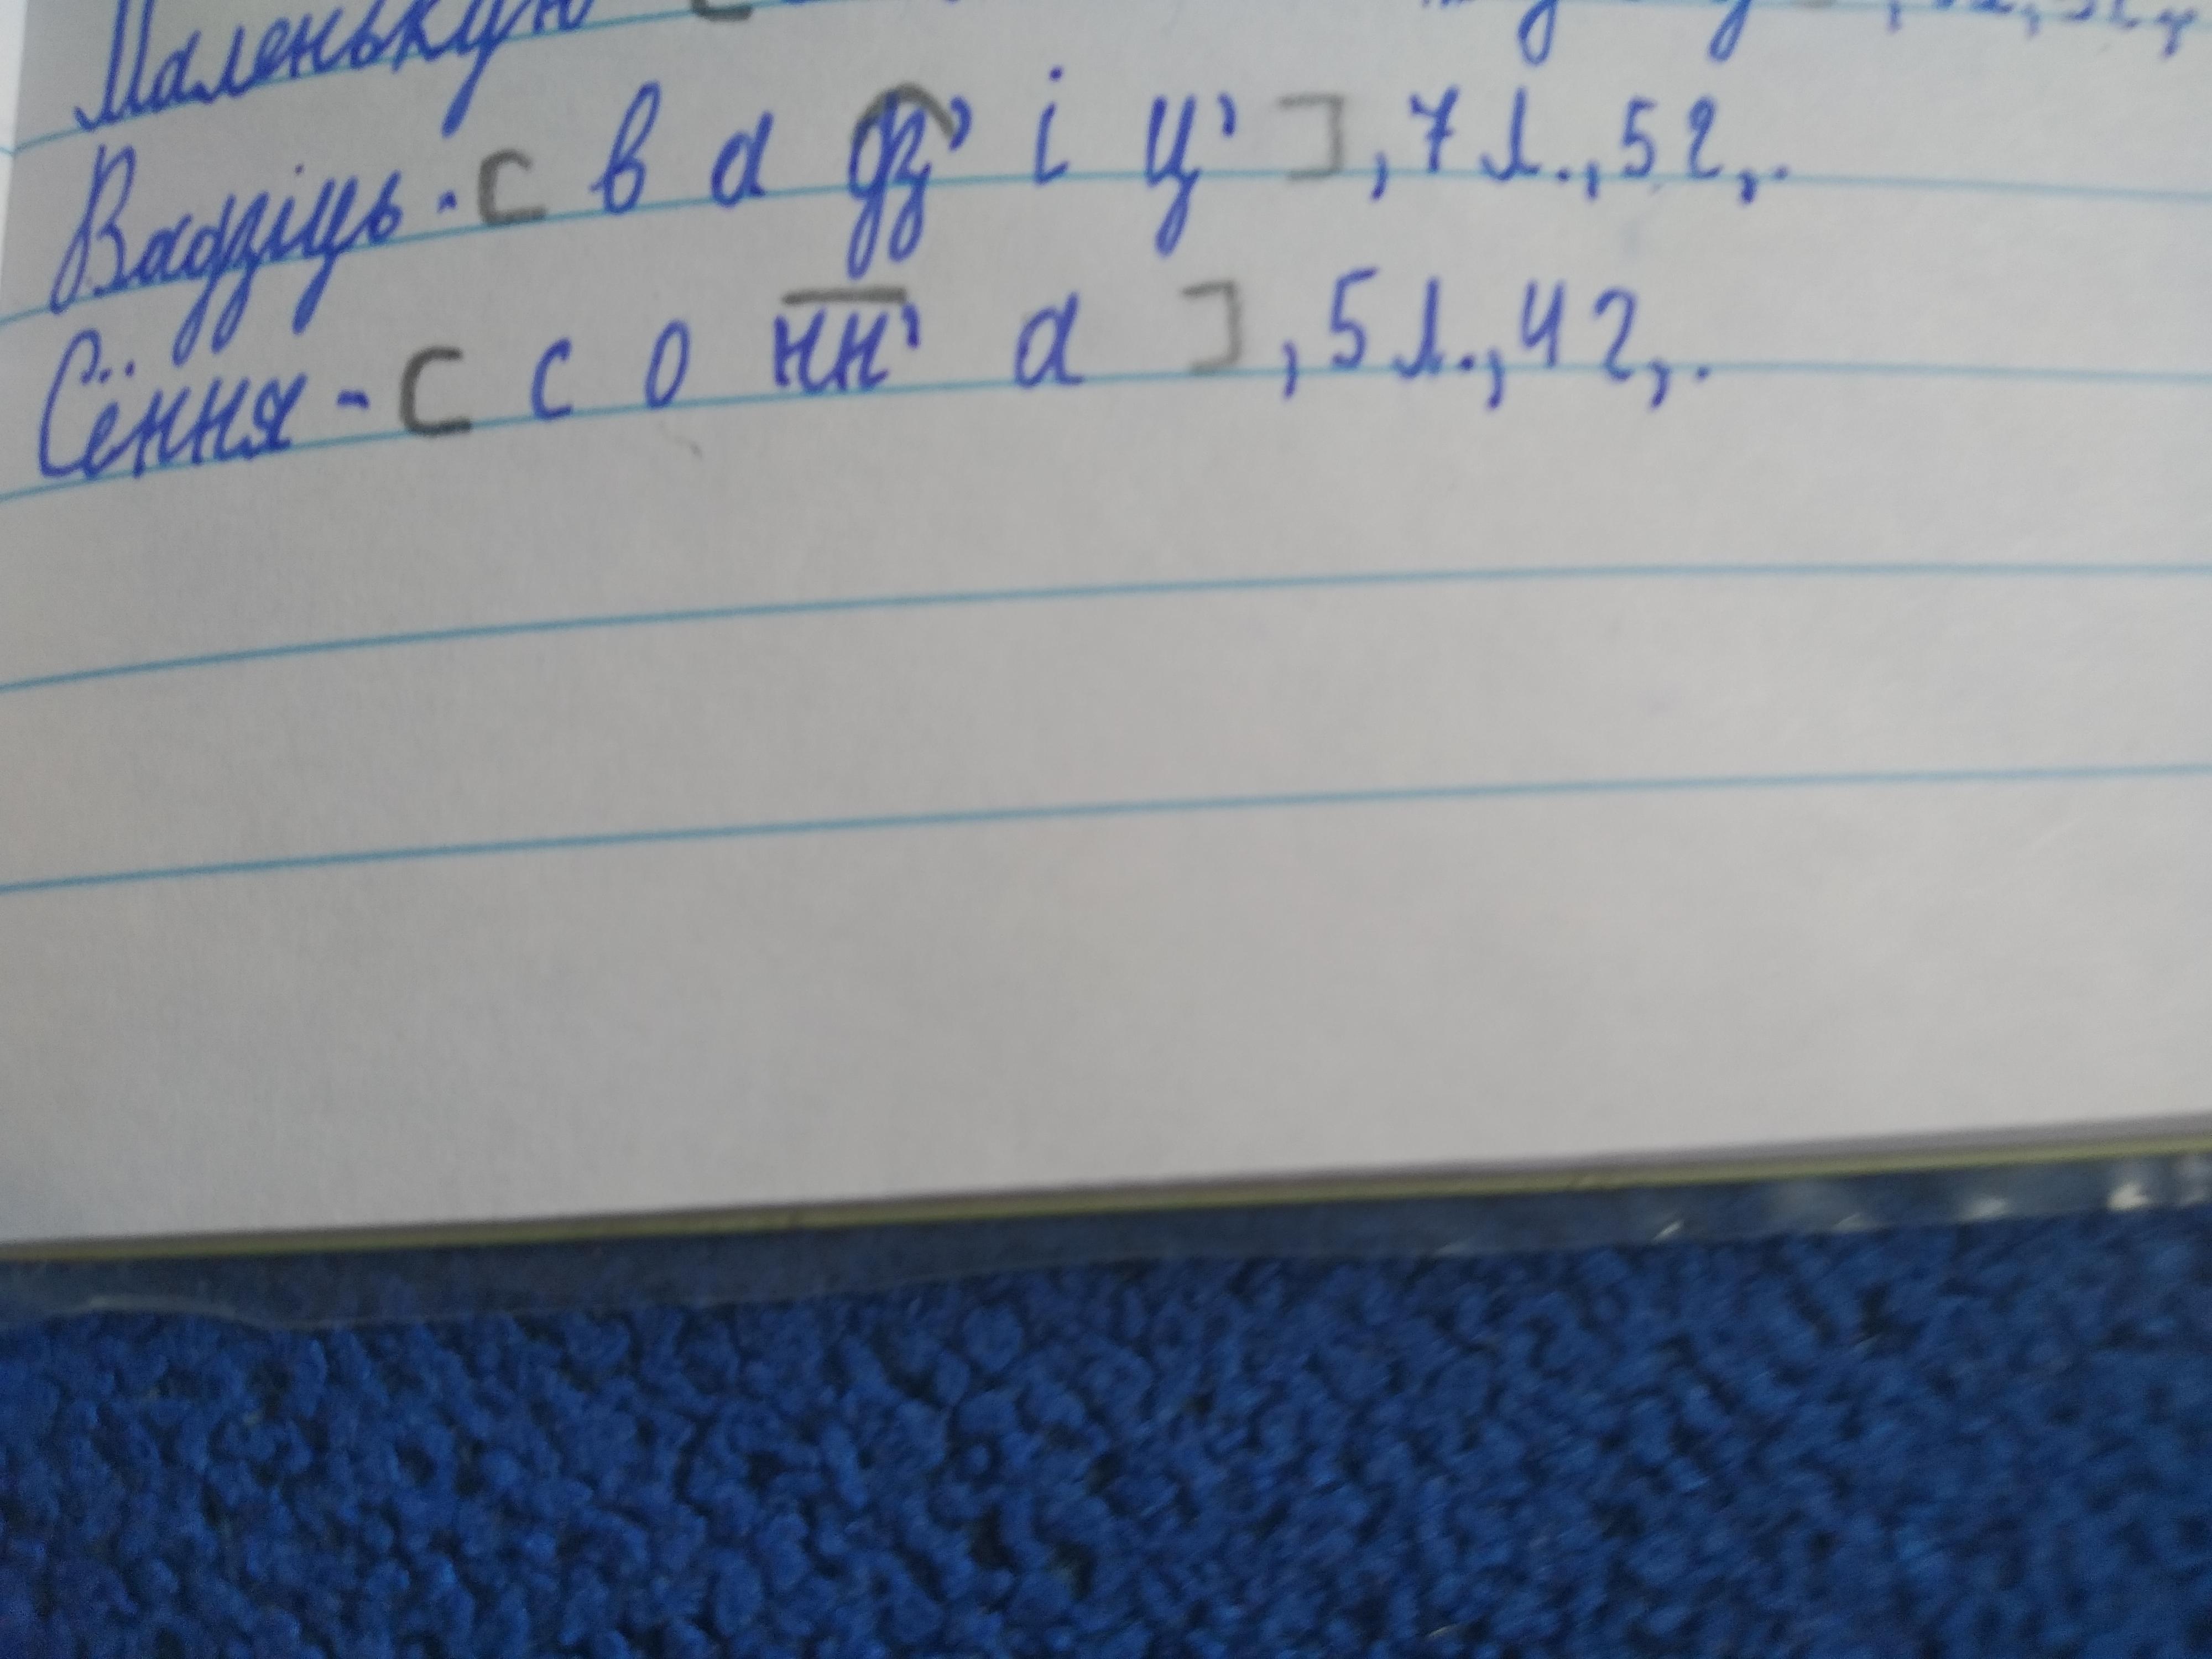 Маленькую
Вадзіць - [ в а дз' і ц' ], 7 л., 5 г,.
Сёння - [ с о нн' а ], 5 л., 4 г,.